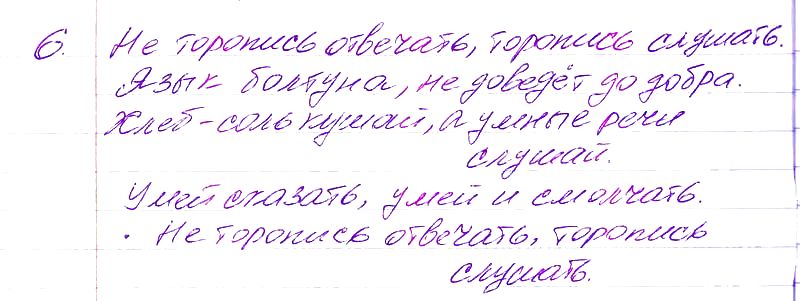 6. Не торопись отвечать, торопись слушать.
Язык болтуна, не доведёт до добра.
Хлеб-соль кушай, а умные речи
слушай.
Умей сказать, умей и смолчать.
• Не торопись отвечать, торопись
слушать.